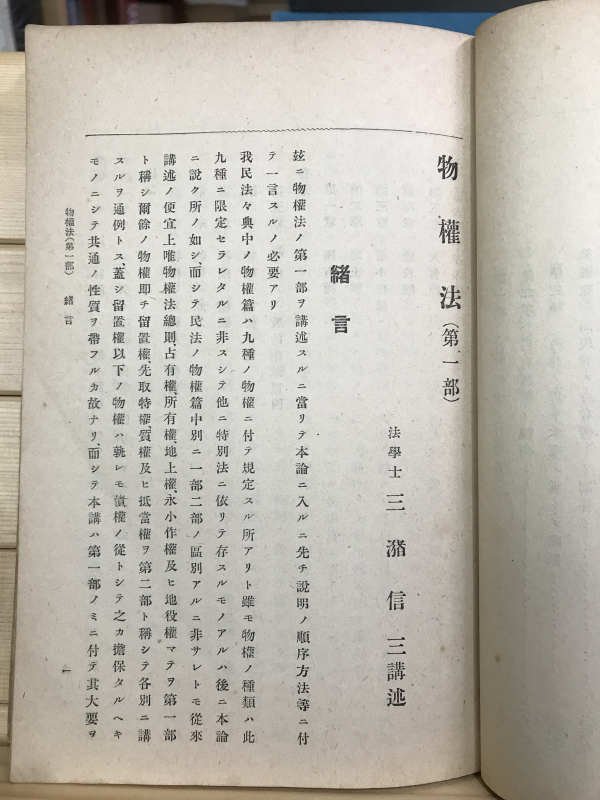 物權法（第一部）
法學士 三潴信三講述
緒言
玆ニ物權法ノ第一部ヲ講述スルニ當リテ本論ニ入ルニ先チ說明ノ順序方法等ニ付
テ一言スルノ必要アリ
我民法々典中ノ物權篇ハ九種ノ物權ニ付テ規定スル所アリト雖モ物權ノ種類ハ此
九種ニ限定セラレタルニ非スシテ他ニ特別法ニ依リテ存スルモノアルハ後ニ本論
ニ說ク所ノ如シ、而シテ民法ノ物權篇中別ニ一部二部ノ區別アルニ非サレトモ從來
講述ノ便宜上唯物權法總則、占有權、所有權、地上權、永小作權及ヒ地役權マテヲ第一部
ト稱シ爾餘ノ物權即チ留置權、先取特權、質權及ヒ抵當權ヲ第二部ト稱シテ各別ニ講
スルヲ通例トス、蓋シ留置權以下ノ物權ハ孰レモ債權ノ從トシテ之カ擔保タルヘキ
モノニシテ共通ノ性質ヲ帶フルカ故ナリ、而シテ本講ハ第一部ノミニ付テ其大要ヲ
物權法（第一部） 緒言
一